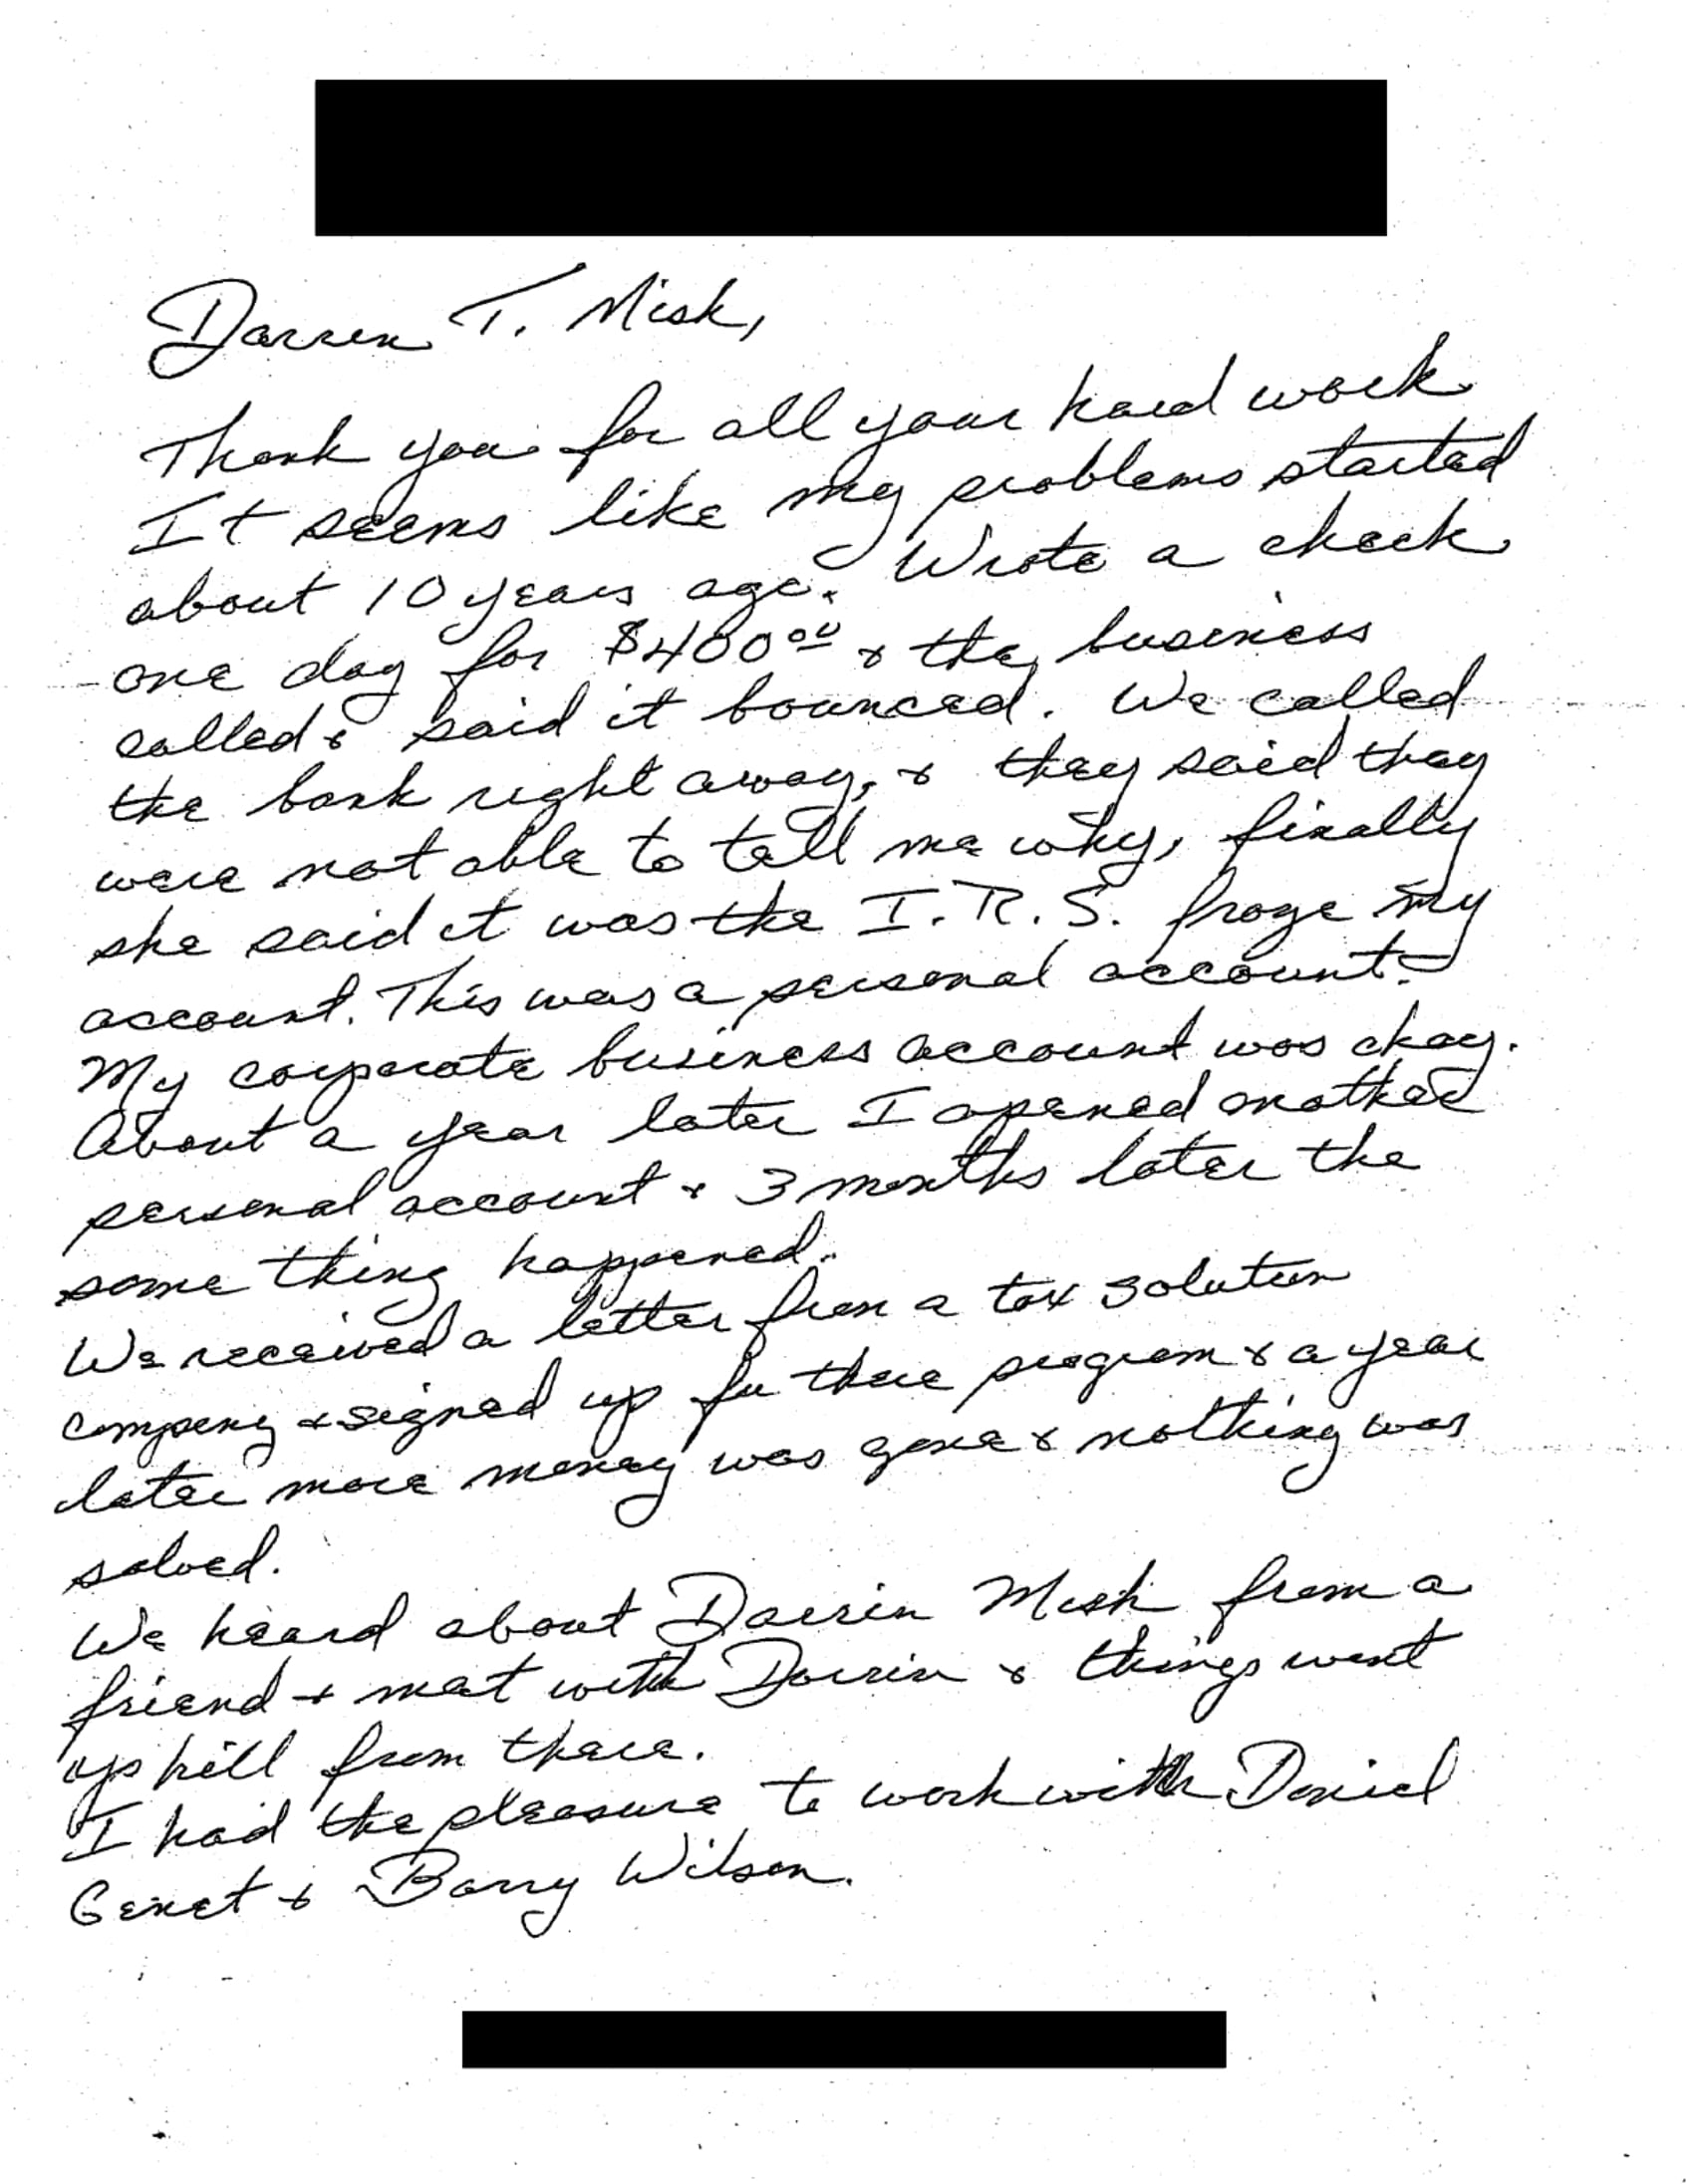 Darren T. Mish,
Thank you for all your hard work
It seems like my problems started
about 10 years ago. Wrote a check
one day for $400.00 & the business
called & said it bounced. We called
the bank right away, & they said they
were not able to tell me why, finally
she said it was the I.R.S. froze my
account. This was a personal account.
My corporate business account was okay.
About a year later I opened another
personal account & 3 months later the
same thing happened.
We received a letter from a tax solution
company & signed up for there program & a year
later more money was gone & nothing was
solved.
We heard about Darrin Mish from a
friend & met with Darrin & things went
up hill from there.
I had the pleasure to work with Daniel
Genet & Barry Wilson.